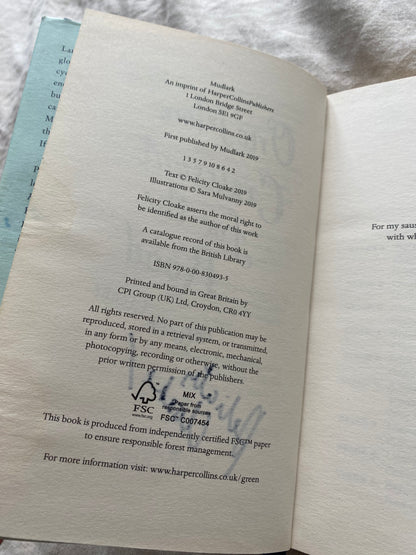 Mudlark
An imprint of HarperCollinsPublishers
1 London Bridge Street
London SE1 9GF
www.harpercollins.co.uk
First published by Mudlark 2019
1 3 5 7 9 10 8 6 4 2
Text © Felicity Cloake 2019
Illustrations © Sara Mulvanny 2019
Felicity Cloake asserts the moral right to
be identified as the author of this work
A catalogue record of this book is
available from the British Library
ISBN 978-0-00-830493-5
Printed and bound in Great Britain by
CPI Group (UK) Ltd, Croydon, CR0 4YY
All rights reserved. No part of this publication may be
reproduced, stored in a retrieval system, or transmitted,
in any form or by any means, electronic, mechanical,
photocopying, recording or otherwise, without the
prior written permission of the publishers.
FSC
www.fsc.org
MIX
Paper from
responsible sources
FSC™ C007454
This book is produced from independently certified FSC™ paper
to ensure responsible forest management.
For more information visit: www.harpercollins.co.uk/green
For my saus
with wh